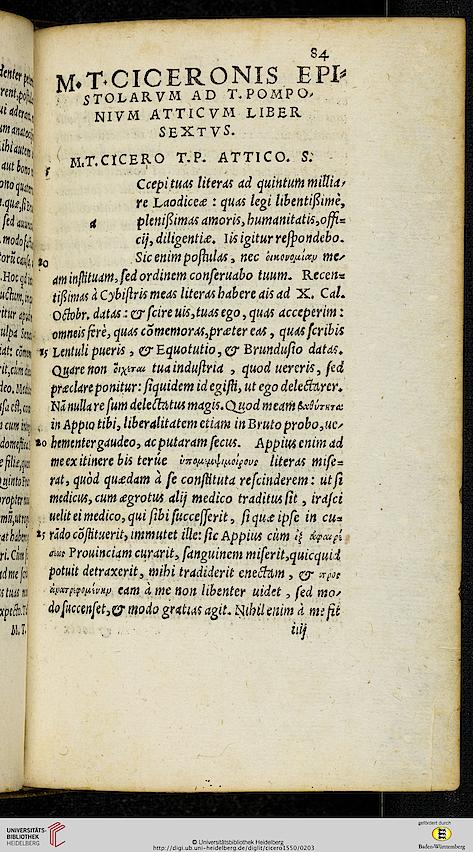 84
M. T. CICERONIS EPI-
STOLARVM AD T. POMPO,
NIVM ATTICVM LIBER
SEXTVS.
M. T. CICERO T. P. ATTICO. S.
a
Ccepi tuas literas ad quintum millia,
re Laodiceæ : quas legi libentißimè,
plenißimas amoris, humanitatis, offi-
cij, diligentiæ. Iis igitur respondebo.
Sic enim postulas, nec οἰκονομίαν me,
10
am instituam, sed ordinem conseruabo tuum. Recen-
tißimas à Cybistris meas literas habere ais ad X. Cal.
Octobr. datas : & scire uis, tuas ego, quas acceperim :
omneis ferè, quas cōmemoras, præter eas , quas scribis
15 Lentuli pueris , & Equotutio, & Brundusio datas.
Quare non οἴχεται tua industria , quod uereris, sed
præclare ponitur: siquidem id egisti, ut ego delectarer.
Nā nulla re sum delectatus magis. Quod meam βαθύτητα
in Appio tibi, liberalitatem etiam in Bruto probo, ue,
20 hementer gaudeo, ac putaram secus. Appius enim ad
me ex itinere bis terúe ὑπομεμψιμοίρους literas mise-
rat, quòd quædam à se constituta rescinderem : ut si
medicus, cum ægrotus alij medico traditus sit , irasci
uelit ei medico, qui sibi successerit , si quæ ipse in cu-
25 rādo cōstituerit, immutet ille: sic Appius cùm ἐξ ἀφαιρέ
σεως Prouinciam curarit, sanguinem miserit, quicquid
potuit detraxerit, mihi tradiderit enectam , & προσ
eam à me non libenter uidet , sed mo,
do succenset, & modo gratias agit. Nihil enim à me fit
iiij
M. T.
UNIVERSITÄTS-
BIBLIOTHEK
HEIDELBERG
© Universitätsbibliothek Heidelberg
http://digi.ub.uni-heidelberg.de/diglit/cicero1550/0203
gefördert durch
Baden-Württemberg